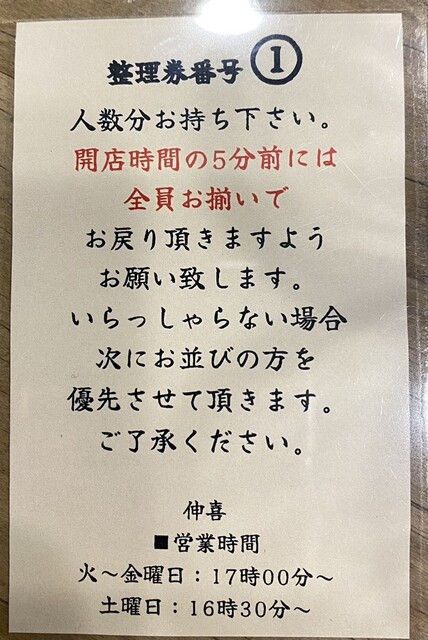 整理券番号①
人数分お持ち下さい。
開店時間の5分前には
全員お揃いで
お戻り頂きますよう
お願い致します。
いらっしゃらない場合
次にお並びの方を
優先させて頂きます。
ご了承ください。
伸喜
■営業時間
火～金曜日：17時00分～
土曜日：16時30分～